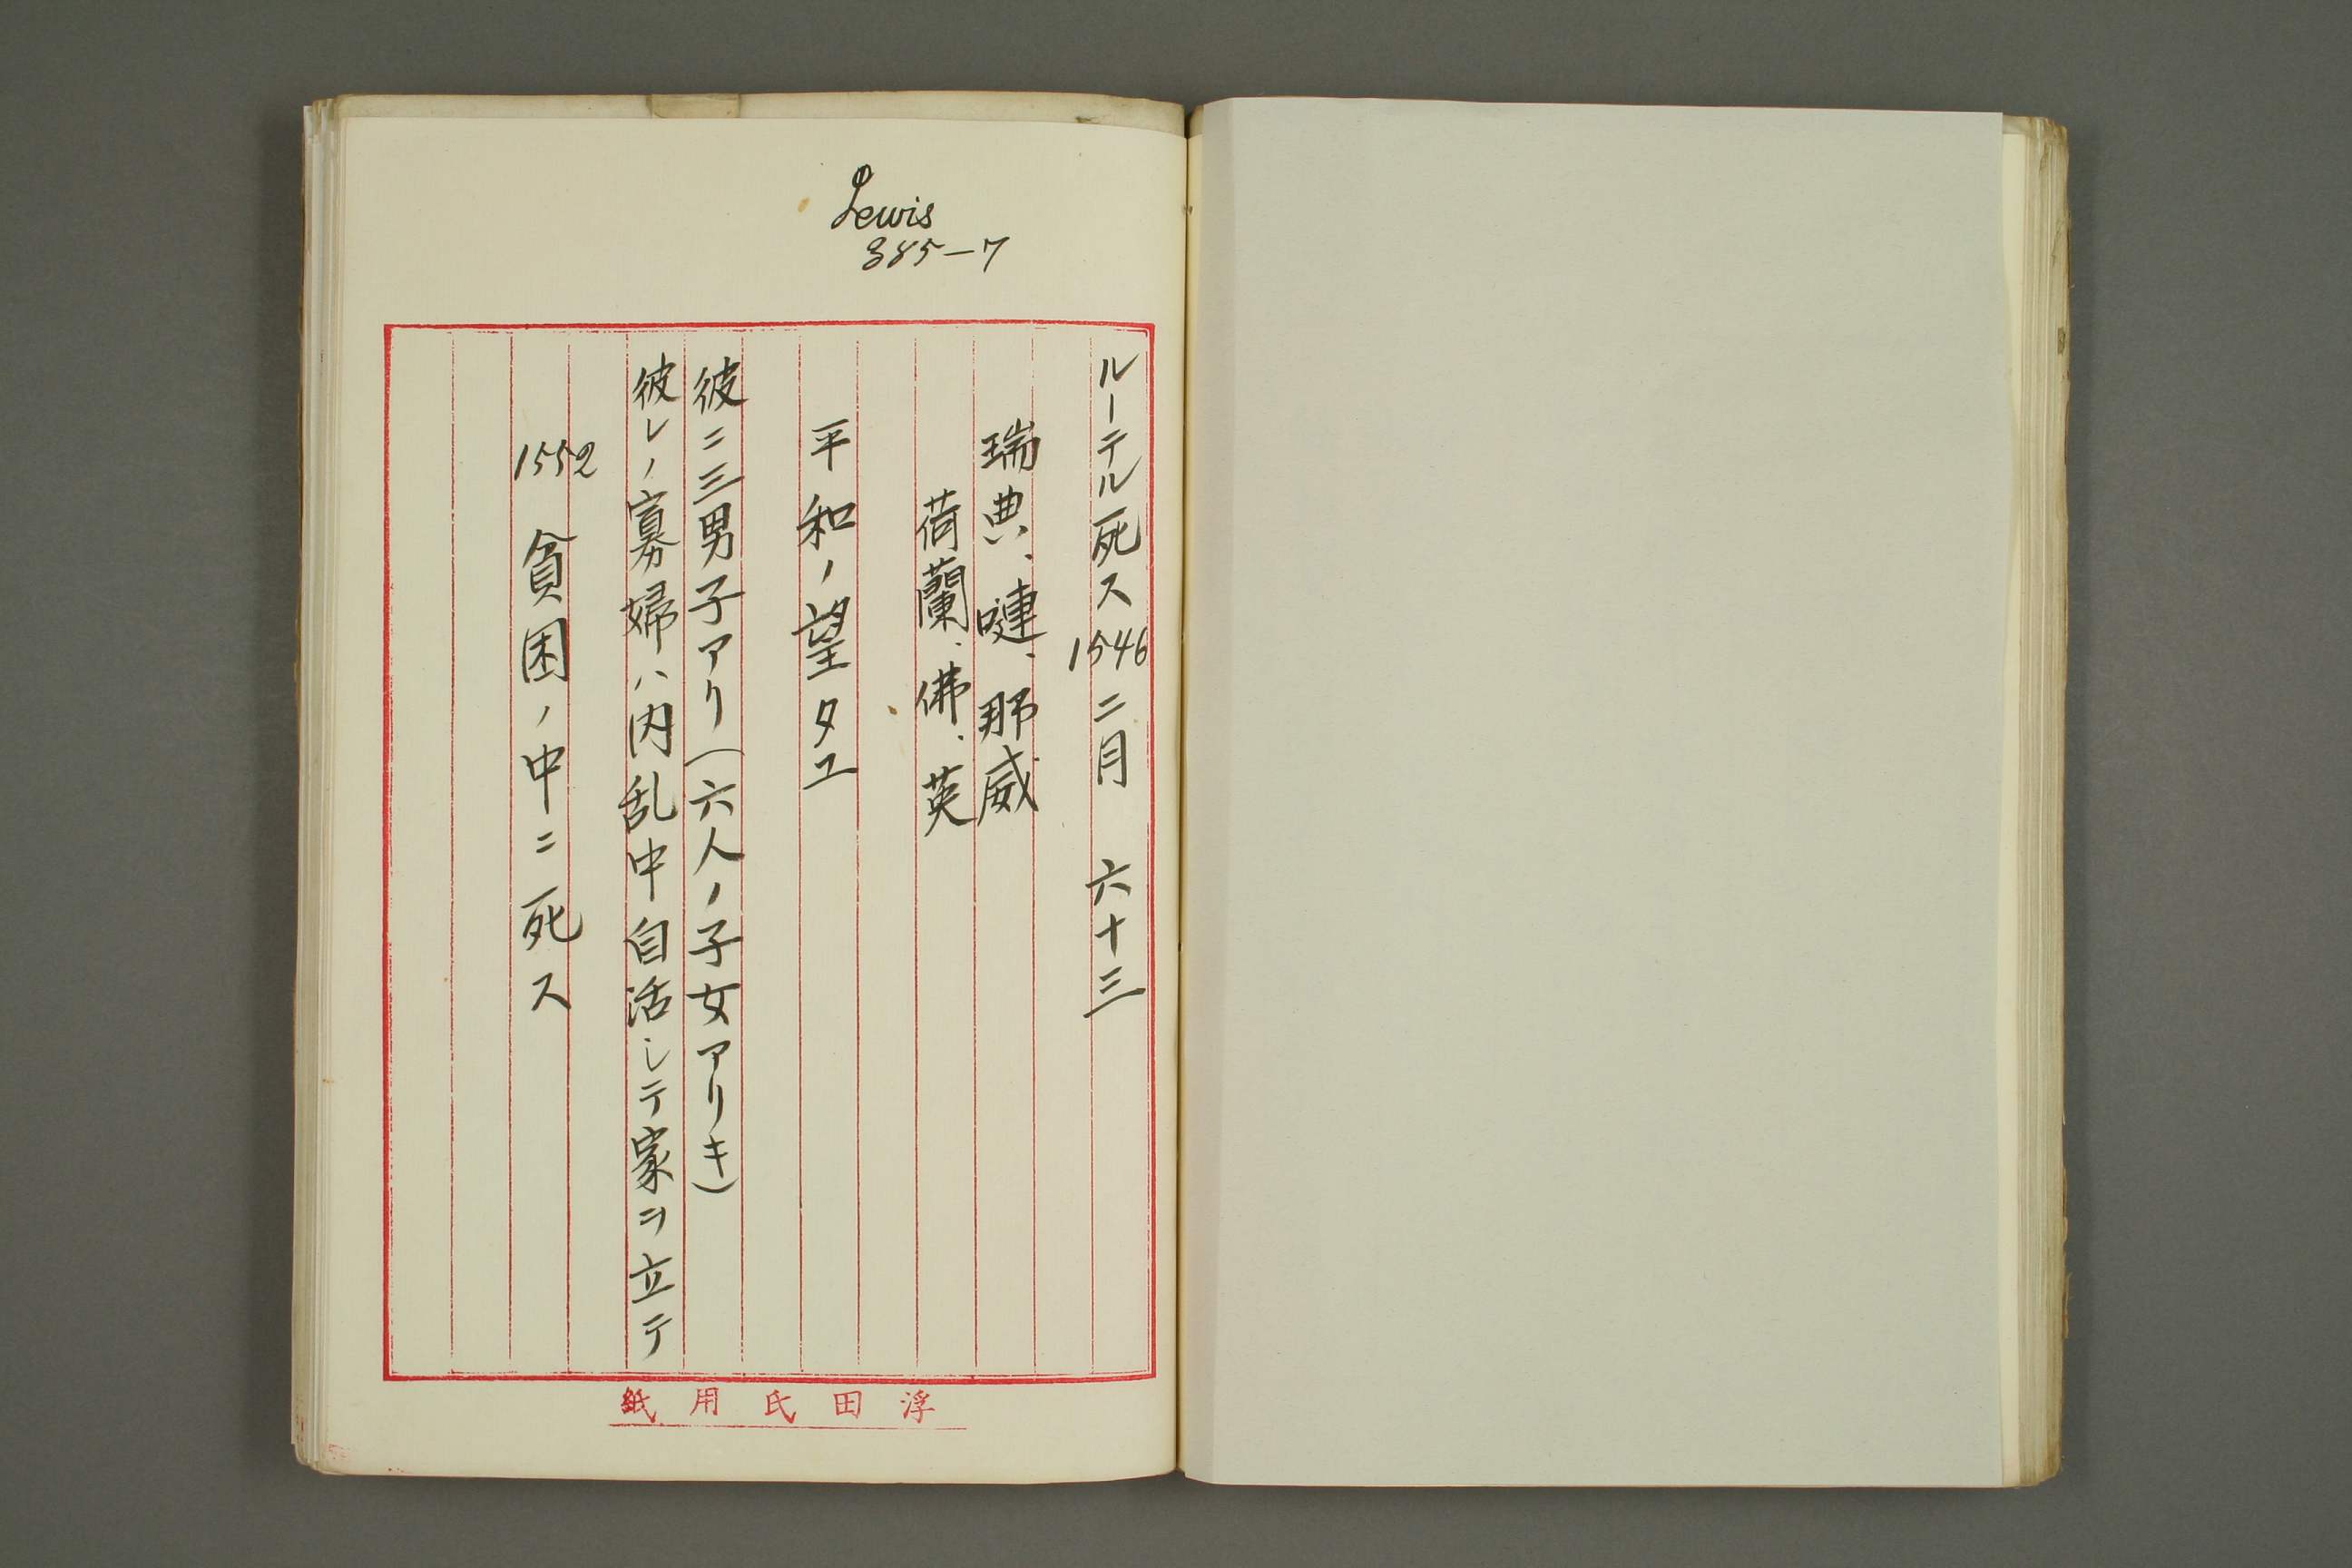 Lewis
385-7
ルーテル死ス1546二月　六十三
瑞典、嗹、那威
荷蘭、佛、英
平和ノ望タユ
彼ニ三男子アリ(六人ノ子女アリキ)
彼レノ寡婦ハ内乱中自活シテ家ヲ立テ
1552 貧困ノ中ニ死ス
浮田氏用紙